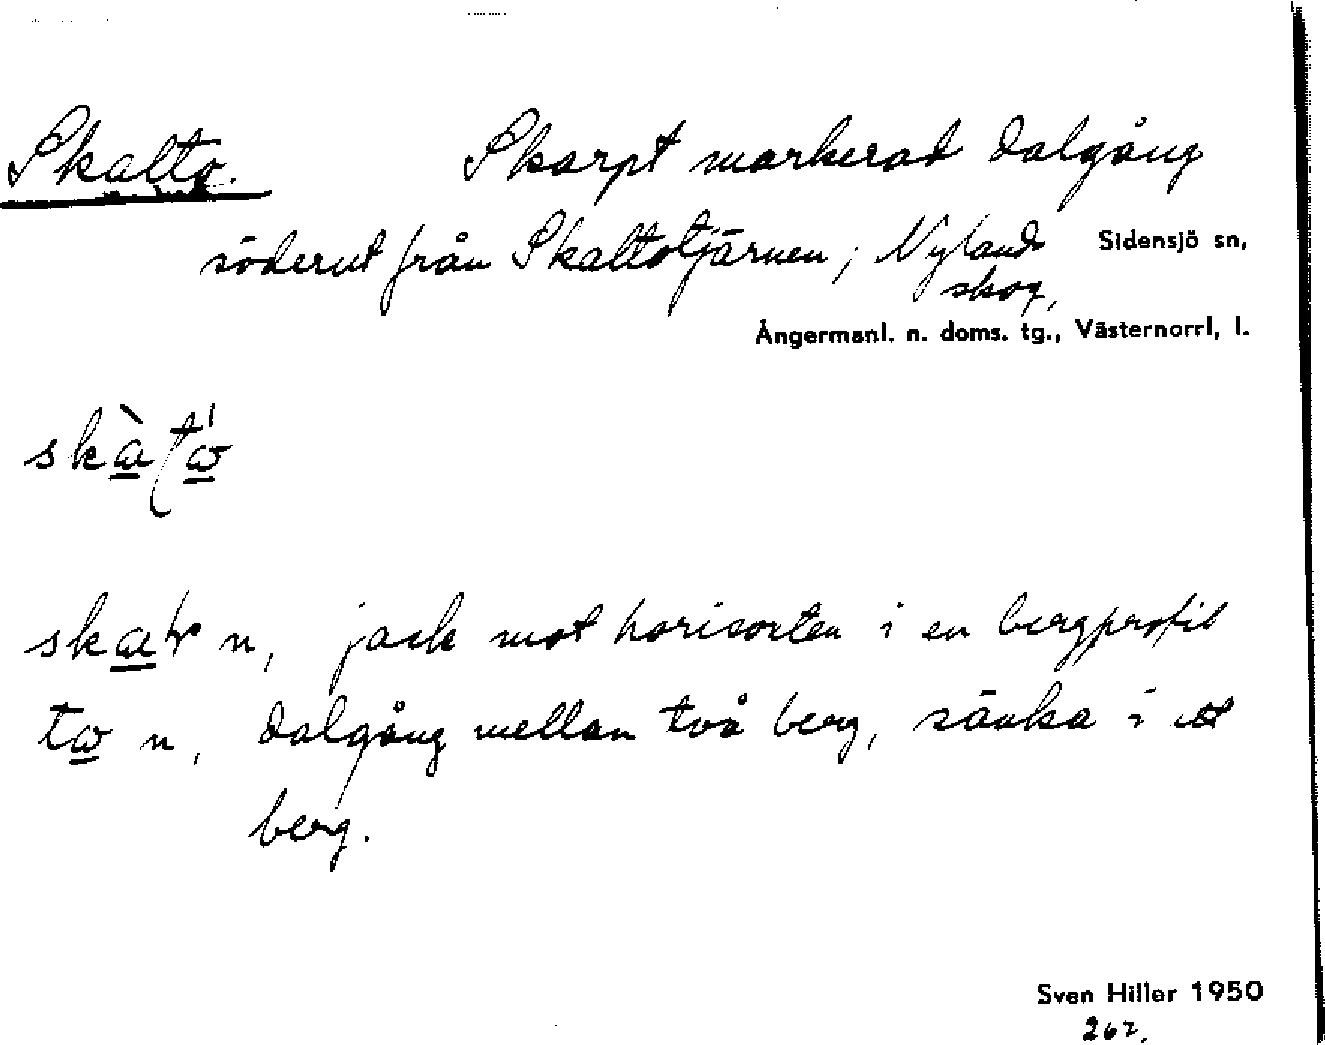 Skalto. Skarpt markerad dalgång
söderut från Skaltotjärnen; Nyland Sidensjö sn,
skog,
Ångermanl. n. doms. tg., Västernorrl, l.
n, jack mot horisonten i en bergprofil
n, dalgång mellan två berg, sänka i ett
berg.
Sven Hiller 1950
262.